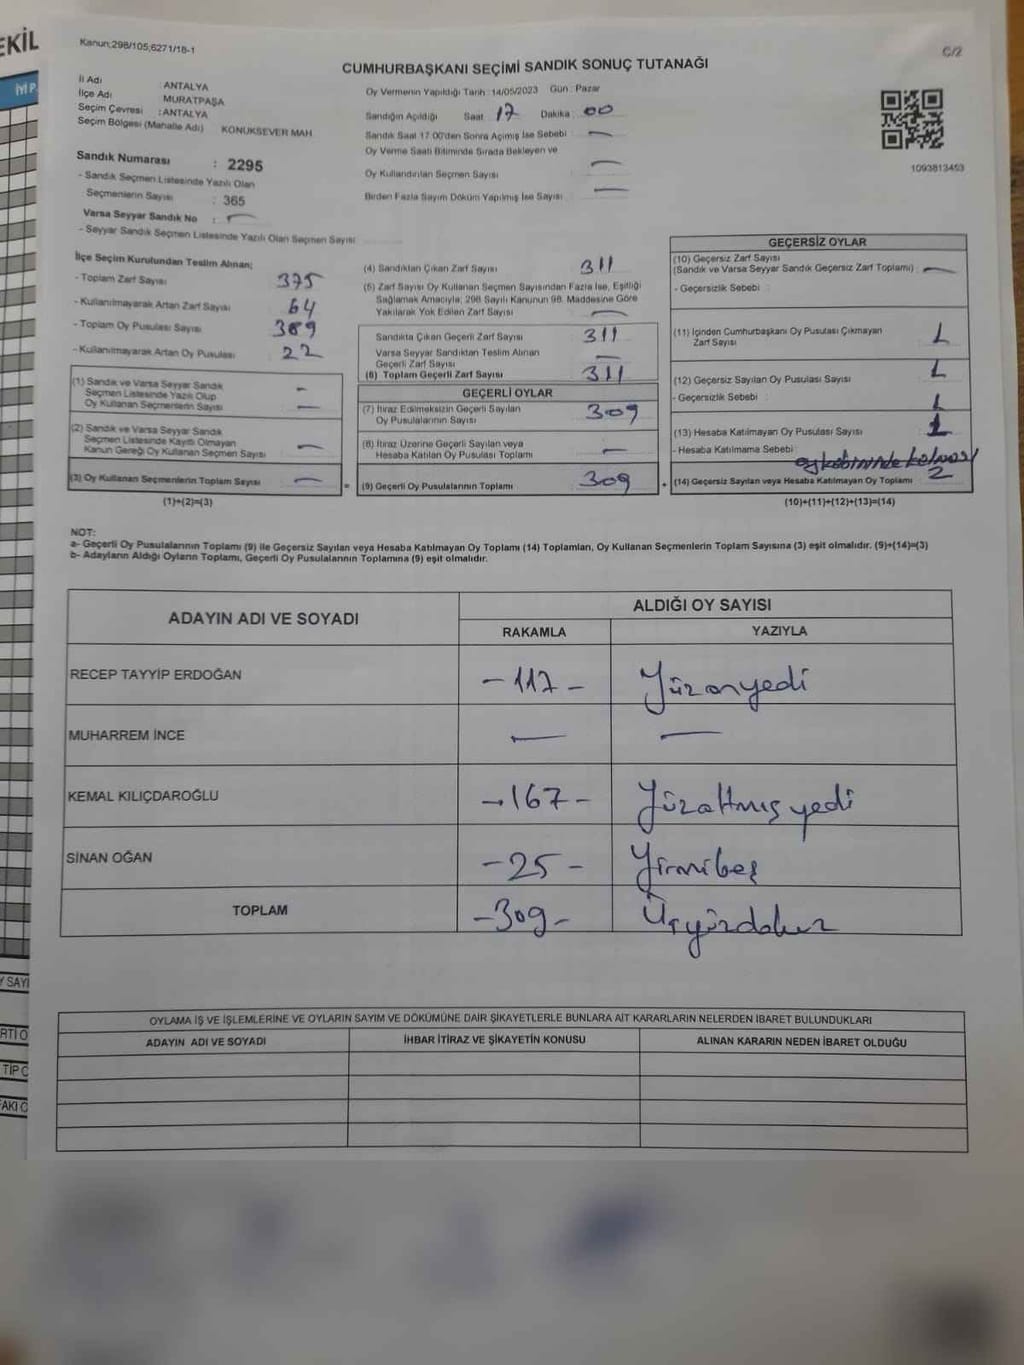 EKİL
İYİ P
Kanun;298/105;6271/18-1
C/2
CUMHURBAŞKANI SEÇİMİ SANDIK SONUÇ TUTANAĞI
İl Adı : ANTALYA
İlçe Adı : MURATPAŞA
Seçim Çevresi : ANTALYA
Seçim Bölgesi (Mahalle Adı) KONUKSEVER MAH
Sandık Numarası : 2295
- Sandık Seçmen Listesinde Yazılı Olan
Seçmenlerin Sayısı : 365
Varsa Seyyar Sandık No : -
- Seyyar Sandık Seçmen Listesinde Yazılı Olan Seçmen Sayısı
Oy Vermenin Yapıldığı Tarih : 14/05/2023 Gün : Pazar
Sandığın Açıldığı Saat : 17 Dakika : 00
Sandık Saat 17.00'den Sonra Açılmış İse Sebebi : -
Oy Verme Saati Bitiminde Sırada Bekleyen ve
Oy Kullandırılan Seçmen Sayısı -
Birden Fazla Sayım Döküm Yapılmış İse Sayısı -
1093813453
İlçe Seçim Kurulundan Teslim Alınan;
- Toplam Zarf Sayısı : 375
- Kullanılmayarak Artan Zarf Sayısı : 64
- Toplam Oy Pusulası Sayısı : 389
- Kullanılmayarak Artan Oy Pusulası : 22
(1) Sandık ve Varsa Seyyar Sandık
Seçmen Listesinde Yazılı Olup
Oy Kullanan Seçmenlerin Sayısı -
(2) Sandık ve Varsa Seyyar Sandık
Seçmen Listesinde Kayıtlı Olmayan
Kanun Gereği Oy Kullanan Seçmen Sayısı -
(3) Oy Kullanan Seçmenlerin Toplam Sayısı -
(1)+(2)=(3)
(4) Sandıktan Çıkan Zarf Sayısı 311
(5) Zarf Sayısı Oy Kullanan Seçmen Sayısından Fazla İse, Eşitliği
Sağlamak Amacıyla; 298 Sayılı Kanunun 98. Maddesine Göre
Yakılarak Yok Edilen Zarf Sayısı -
Sandıkta Çıkan Geçerli Zarf Sayısı 311
Varsa Seyyar Sandıktan Teslim Alınan
Geçerli Zarf Sayısı -
(6) Toplam Geçerli Zarf Sayısı 311
GEÇERLİ OYLAR
(7) İtiraz Edilmeksizin Geçerli Sayılan
Oy Pusulalarının Sayısı 309
(8) İtiraz Üzerine Geçerli Sayılan veya
Hesaba Katılan Oy Pusulası Toplamı -
= (9) Geçerli Oy Pusulalarının Toplamı 309 +
GEÇERSİZ OYLAR
(10) Geçersiz Zarf Sayısı
(Sandık ve Varsa Seyyar Sandık Geçersiz Zarf Toplamı) : -
- Geçersizlik Sebebi :
(11) İçinden Cumhurbaşkanı Oy Pusulası Çıkmayan
Zarf Sayısı 1
(12) Geçersiz Sayılan Oy Pusulası Sayısı 1
- Geçersizlik Sebebi : 1
(13) Hesaba Katılmayan Oy Pusulası Sayısı 1
- Hesaba Katılmama Sebebi
(14) Geçersiz Sayılan veya Hesaba Katılmayan Oy Toplamı 2
(10)+(11)+(12)+(13)=(14)
NOT:
a- Geçerli Oy Pusulalarının Toplamı (9) ile Geçersiz Sayılan veya Hesaba Katılmayan Oy Toplamı (14) Toplamları, Oy Kullanan Seçmenlerin Toplam Sayısına (3) eşit olmalıdır. (9)+(14)=(3)
b- Adayların Aldığı Oyların Toplamı, Geçerli Oy Pusulalarının Toplamına (9) eşit olmalıdır.
ADAYIN ADI VE SOYADI ALDIĞI OY SAYISI
RAKAMLA YAZIYLA
RECEP TAYYİP ERDOĞAN -117- Yüzonyedi
MUHARREM İNCE - -
KEMAL KILIÇDAROĞLU -167- Yüzaltmışyedi
SİNAN OĞAN -25- Yirmibeş
TOPLAM -309- Üçyüzdokuz
OYLAMA İŞ VE İŞLEMLERİNE VE OYLARIN SAYIM VE DÖKÜMÜNE DAİR ŞİKAYETLERLE BUNLARA AİT KARARLARIN NELERDEN İBARET BULUNDUKLARI
ADAYIN ADI VE SOYADI İHBAR İTİRAZ VE ŞİKAYETİN KONUSU ALINAN KARARIN NEDEN İBARET OLDUĞU
Y SAYI
RTİ O
TİP O
AKI O